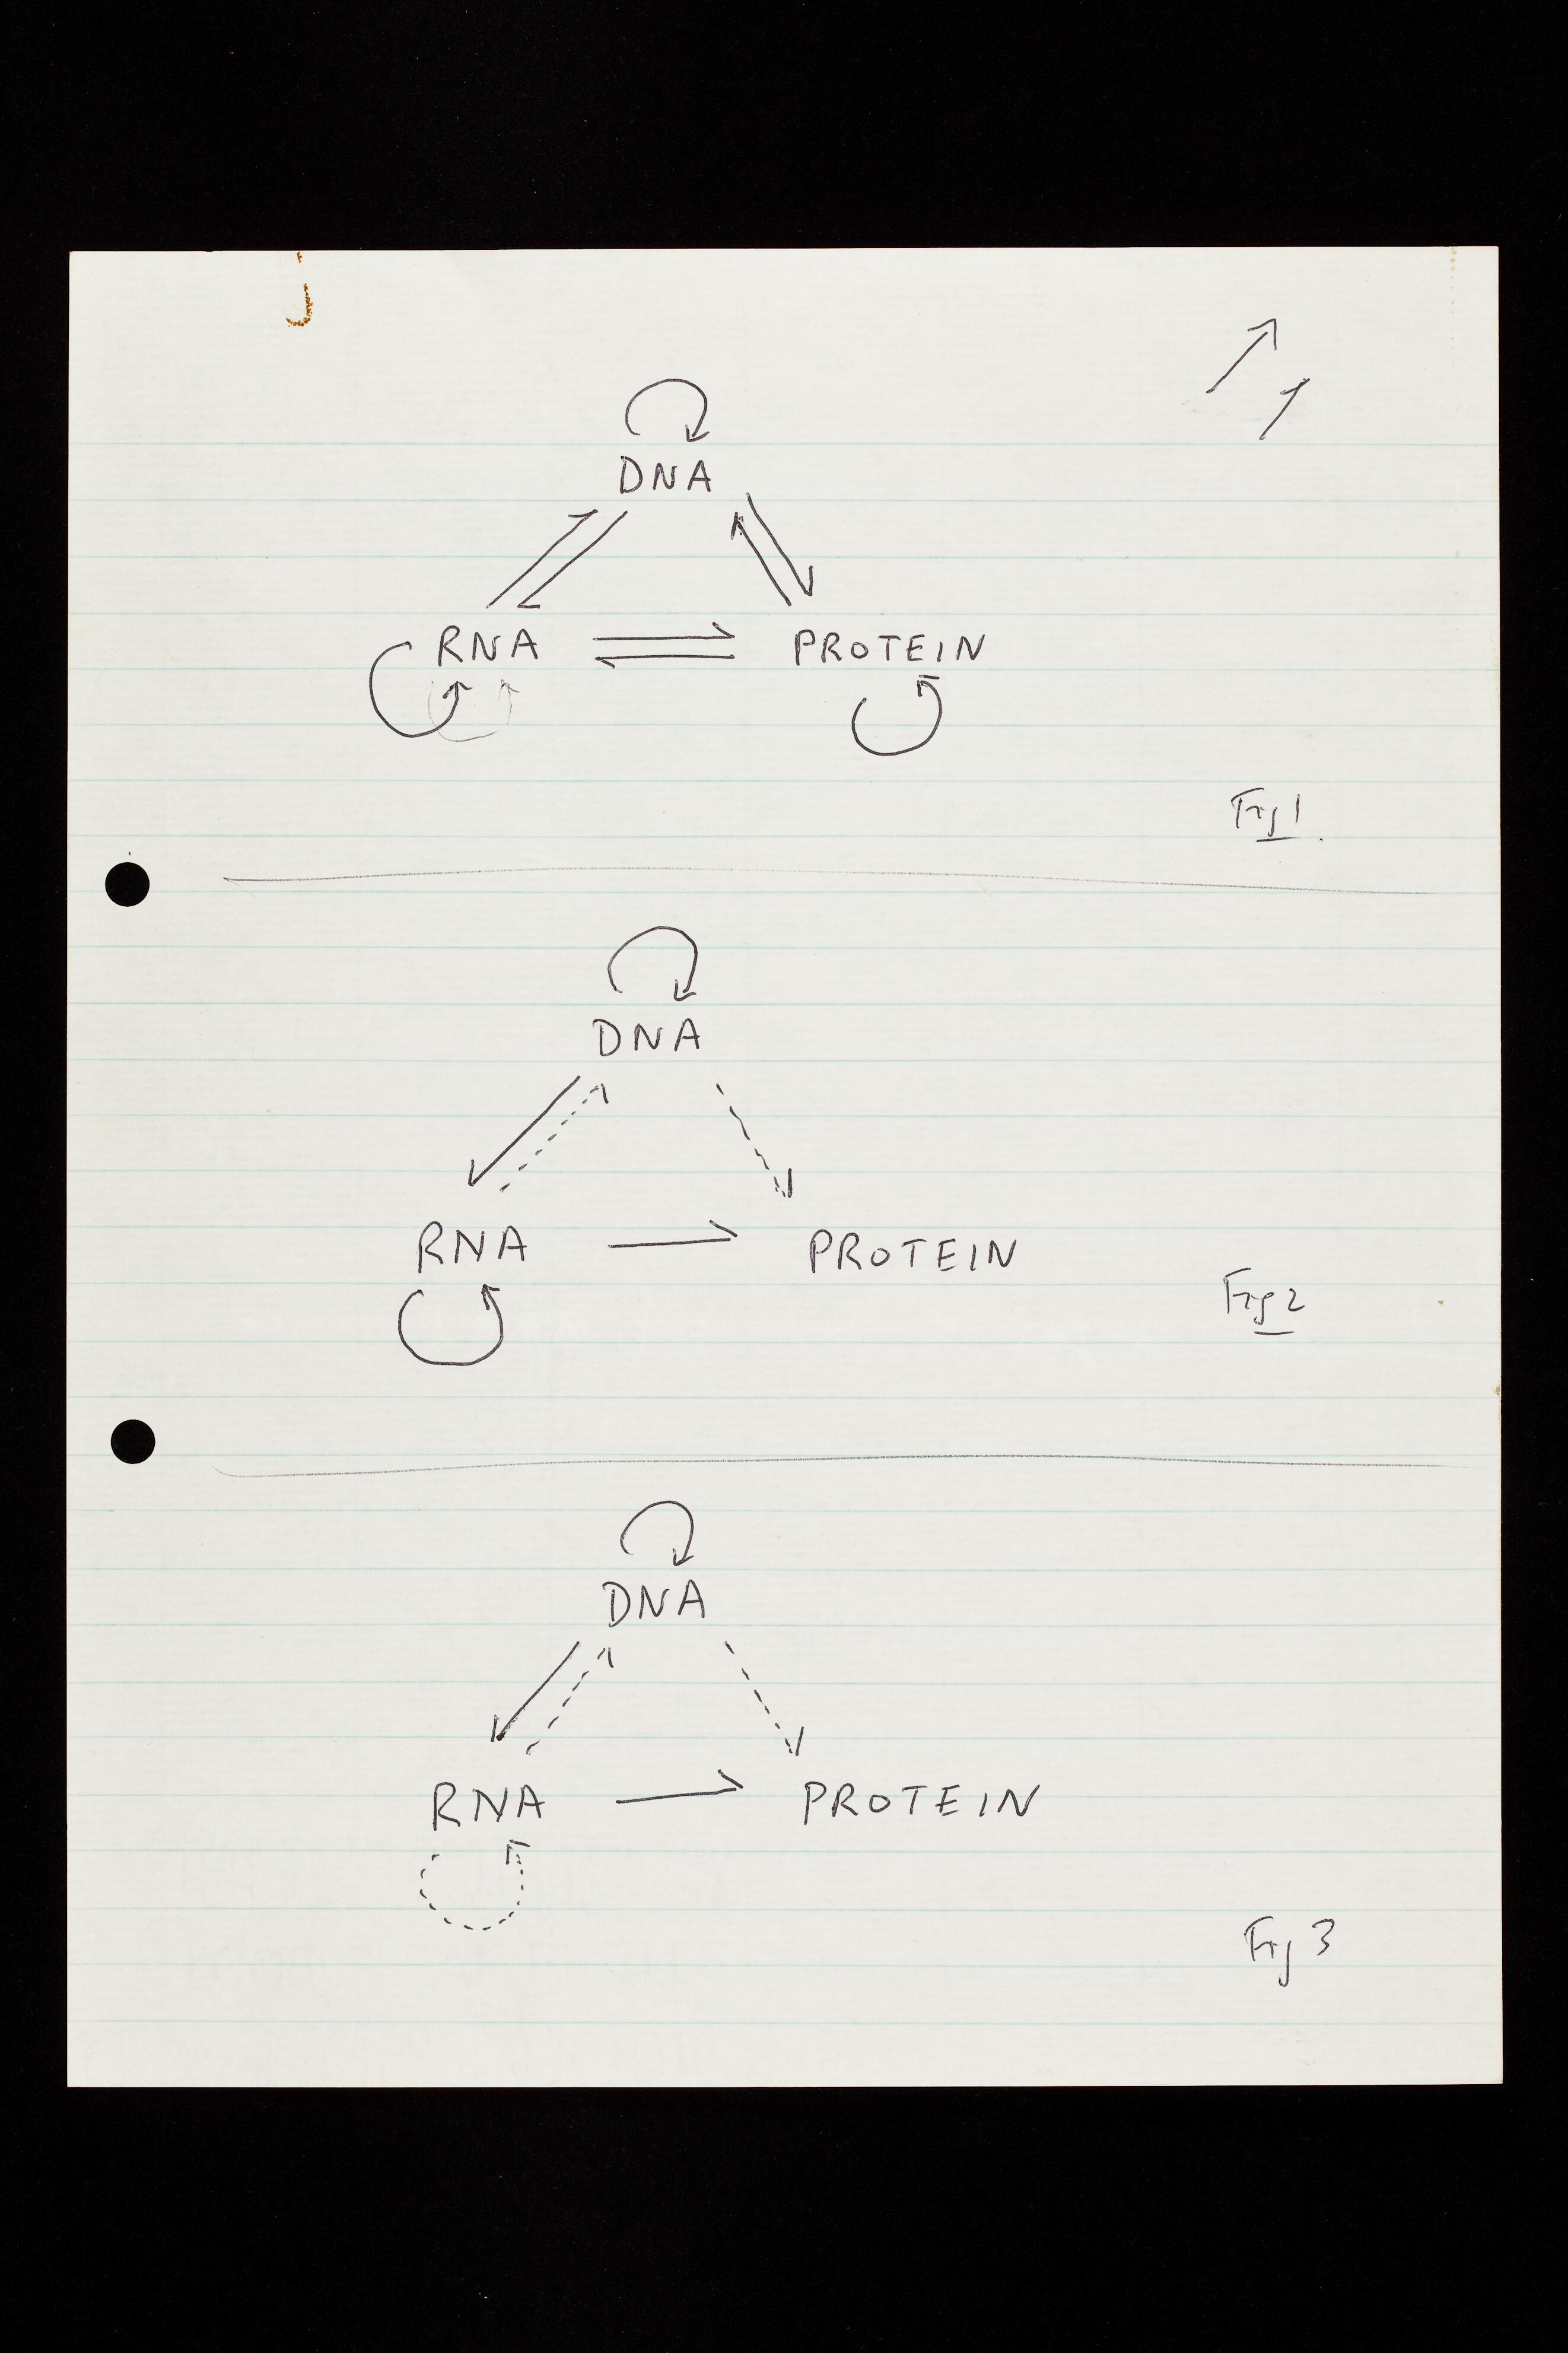 DNA
RNA PROTEIN
Fig 1.
DNA
RNA PROTEIN
Fig 2
DNA
RNA PROTEIN
Fig 3